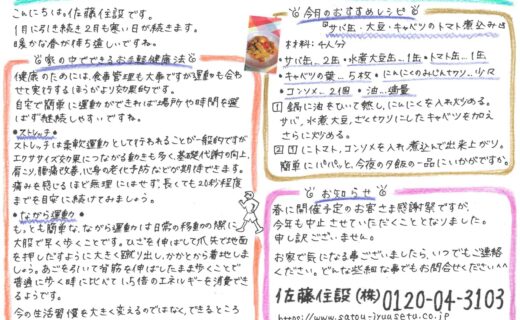 こんにちは。佐藤住設です。
1月に引き続き2月も寒い日が続きます。
暖かな春が待ち遠しいですね。
家の中でできるお手軽健康法
健康のためには、食事管理も大事ですが運動も合わ
せて実行するほうがより効果的です。
自宅で簡単に運動ができれば場所や時間を選
ばず継続しやすいですね。
●ストレッチ●
ストレッチは柔軟運動として行われることが一般的ですが
エクササイズ効果につながる動きも多く、基礎代謝の向上、
肩こり、腰痛改善、心身の老化予防などが期待できます。
痛みを感じるほど無理にはせず、長くても20秒程度
までを目安に続けてみましょう。
●ながら運動●
もっとも簡単な、ながら運動は日常の移動の際に
大股で早く歩くことです。ひざを伸ばして爪先で地面
を押しだすように大きく蹴り出し、かかとから着地しま
しょう。あごを引いて背筋を伸ばしたまま歩くことで
普通に歩く時に比べて1.5倍のエネルギーを消費でき
るようです。
今の生活習慣を大きく変えるのではなく、できるところ
今月のおすすめレシピ
『サバ缶・大豆・キャベツのトマト煮込み』
材料:4人分
サバ缶…2缶・水煮大豆缶…1缶・トマト缶…1缶
キャベツの葉…5枚・にんにくのみじん切り…少々
・コンソメ…2個・油…適量
1 鍋に油をひいて熱し、にんにくを入れ炒める。
サバ、水煮大豆、ざく切りにしたキャベツを加え
さらに炒める。
2 1にトマト、コンソメを入れ煮込んで出来上がり。
簡単にパパっと、今夜の夕飯の一品にいかがですか。
お知らせ
春に開催予定のお客さま感謝祭ですが、
今年も中止させていただくこととなりました。
申し訳ございません。
お家で気になる事ございましたら、いつでもご連絡
ください。どんな些細な事でもお問合せください^^
佐藤住設(株) 0120-04-3103
https://www.satou-jyuusetu.co.jp